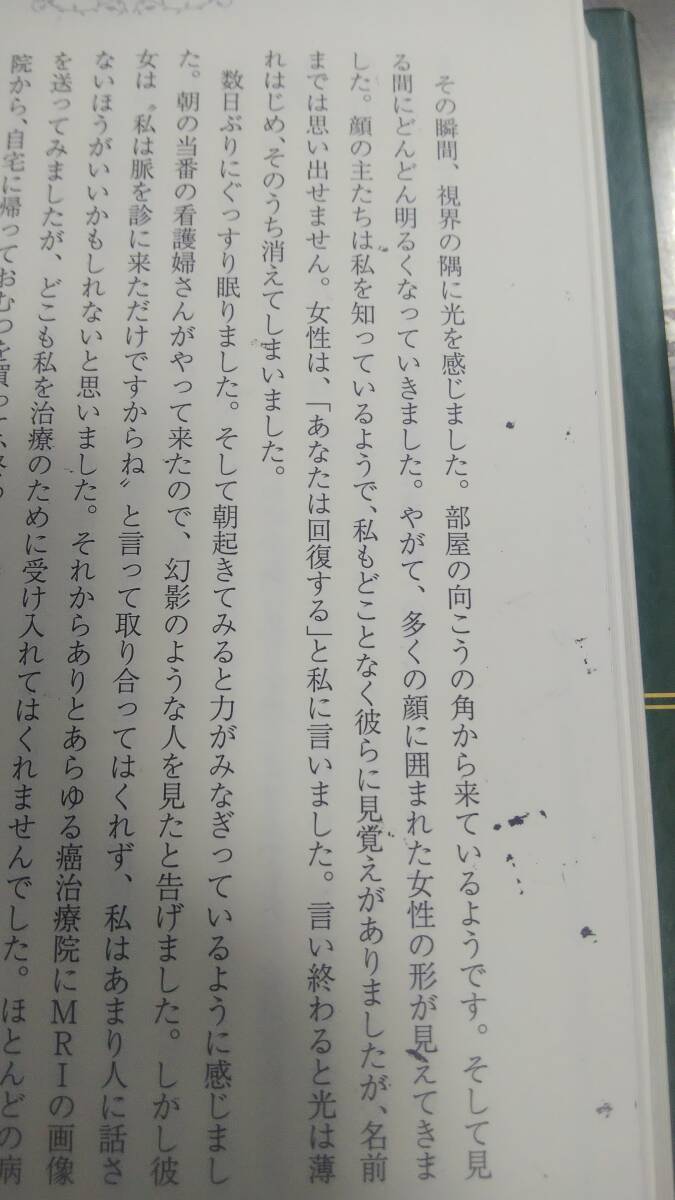 その瞬間、視界の隅に光を感じました。部屋の向こうの角から来ているようです。そして見
る間にどんどん明るくなっていきました。やがて、多くの顔に囲まれた女性の形が見えてきま
した。顔の主たちは私を知っているようで、私もどことなく彼らに見覚えがありましたが、名前
までは思い出せません。女性は、「あなたは回復する」と私に言いました。言い終わると光は薄
れはじめ、そのうち消えてしまいました。
数日ぶりにぐっすり眠りました。そして朝起きてみると力がみなぎっているように感じまし
た。朝の当番の看護婦さんがやって来たので、幻影のような人を見たと告げました。しかし彼
女は〝私は脈を診に来ただけですからね〟と言って取り合ってはくれず、私はあまり人に話さ
ないほうがいいかもしれないと思いました。それからありとあらゆる癌治療院にMRIの画像
を送ってみましたが、どこも私を治療のために受け入れてはくれませんでした。ほとんどの病
院から、自宅に帰っておむつを買って